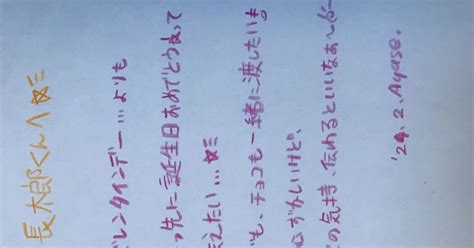 長太郎くんへ☆ミ
バレンタインデー…よりも
っ先に誕生日おめでとうって
えたい…☆ミ
でも、チョコも一緒に渡したい
むずかしいけど、
の気持、伝わるといいなぁ〜
'24.2. Ayase.